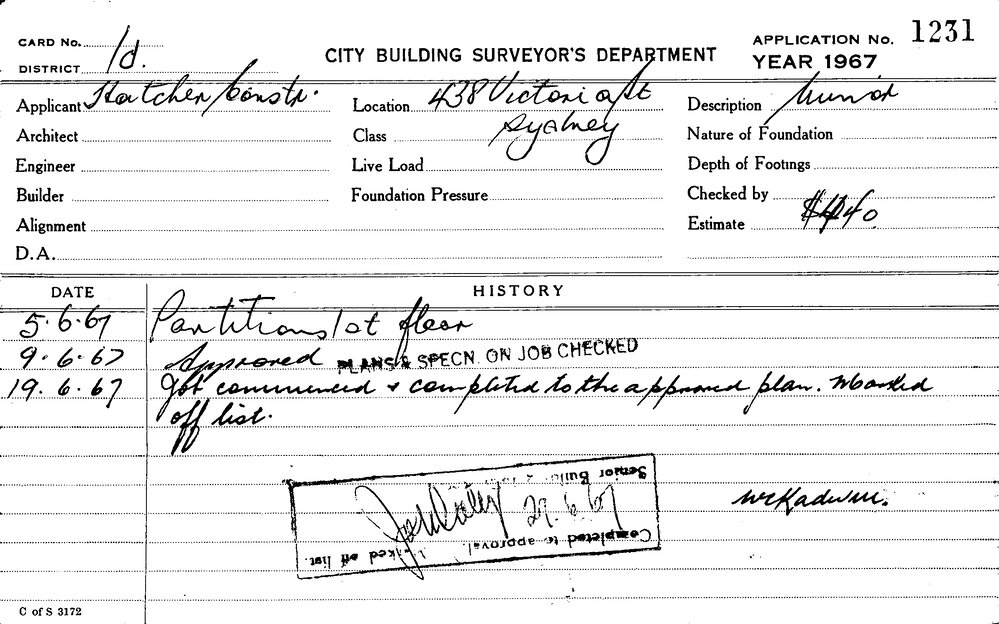 CARD No.
DISTRICT 1d.
CITY BUILDING SURVEYOR'S DEPARTMENT
APPLICATION No. 1231
YEAR 1967
Applicant Hatcher Constr.
Location 438 Victoria St
Sydney
Description Minor
Architect
Class
Nature of Foundation
Engineer
Live Load
Depth of Footings
Builder
Foundation Pressure
Checked by
Alignment
Estimate $440
D.A.
DATE
HISTORY
5.6.67 Partitions 1st floor
9.6.67 Approved PLANS & SPECN. ON JOB CHECKED
19.6.67 Job commenced & completed to the approved plan. Marked
off list.
Completed to approval. Marked off list.
29.6.67
Senior Build
C of S 3172